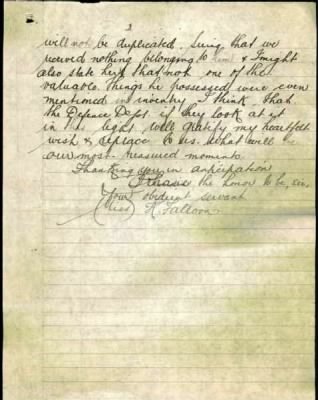 2
will not be duplicated. Seing that we
received nothing belonging to him & I might
also state here that not one of the
valuable things he possessed were even
mentioned in inventry I think that
the Defence Dept if they look at it
in this light will gratify my heartfelt
wish & replace to us what will be
our most treasured momento
Thanking you in anticipation
I have the honor to be, sir,
Your obedient servant
(Miss) K. Falloon